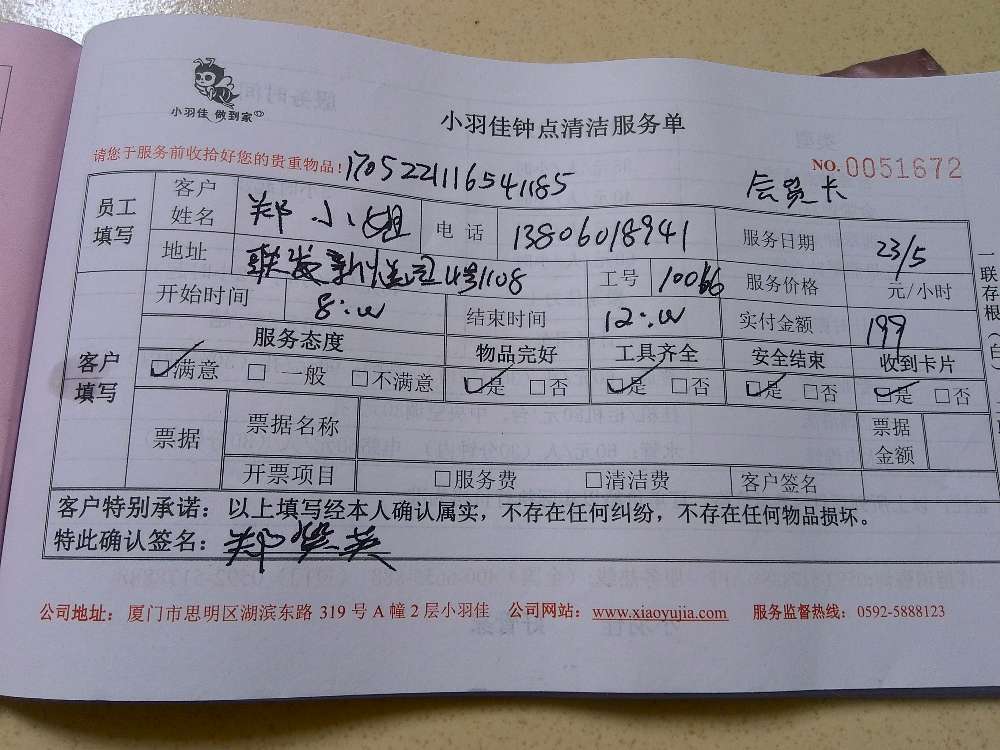 小羽佳 做到家
小羽佳钟点清洁服务单
请您于服务前收拾好您的贵重物品！ 170522111654185 会员卡 NO.0051672
员工填写 客户姓名 郑小姐 电话 13806018941 服务日期 23/5
地址 联发新 4号1108 工号 10066 服务价格 元/小时
客户填写 开始时间 8:00 结束时间 12:00 实付金额 199
服务态度 物品完好 工具齐全 安全结束 收到卡片
☑满意 □一般 □不满意 ☑是 □否 ☑是 □否 ☑是 □否 ☑是 □否
票据 票据名称 票据金额
开票项目 □服务费 □清洁费 客户签名
客户特别承诺：以上填写经本人确认属实，不存在任何纠纷，不存在任何物品损坏。
特此确认签名：郑 英
公司地址：厦门市思明区湖滨东路 319 号 A 幢 2 层小羽佳 公司网站：www.xiaoyujia.com 服务监督热线：0592-5888123
一联存根（白）